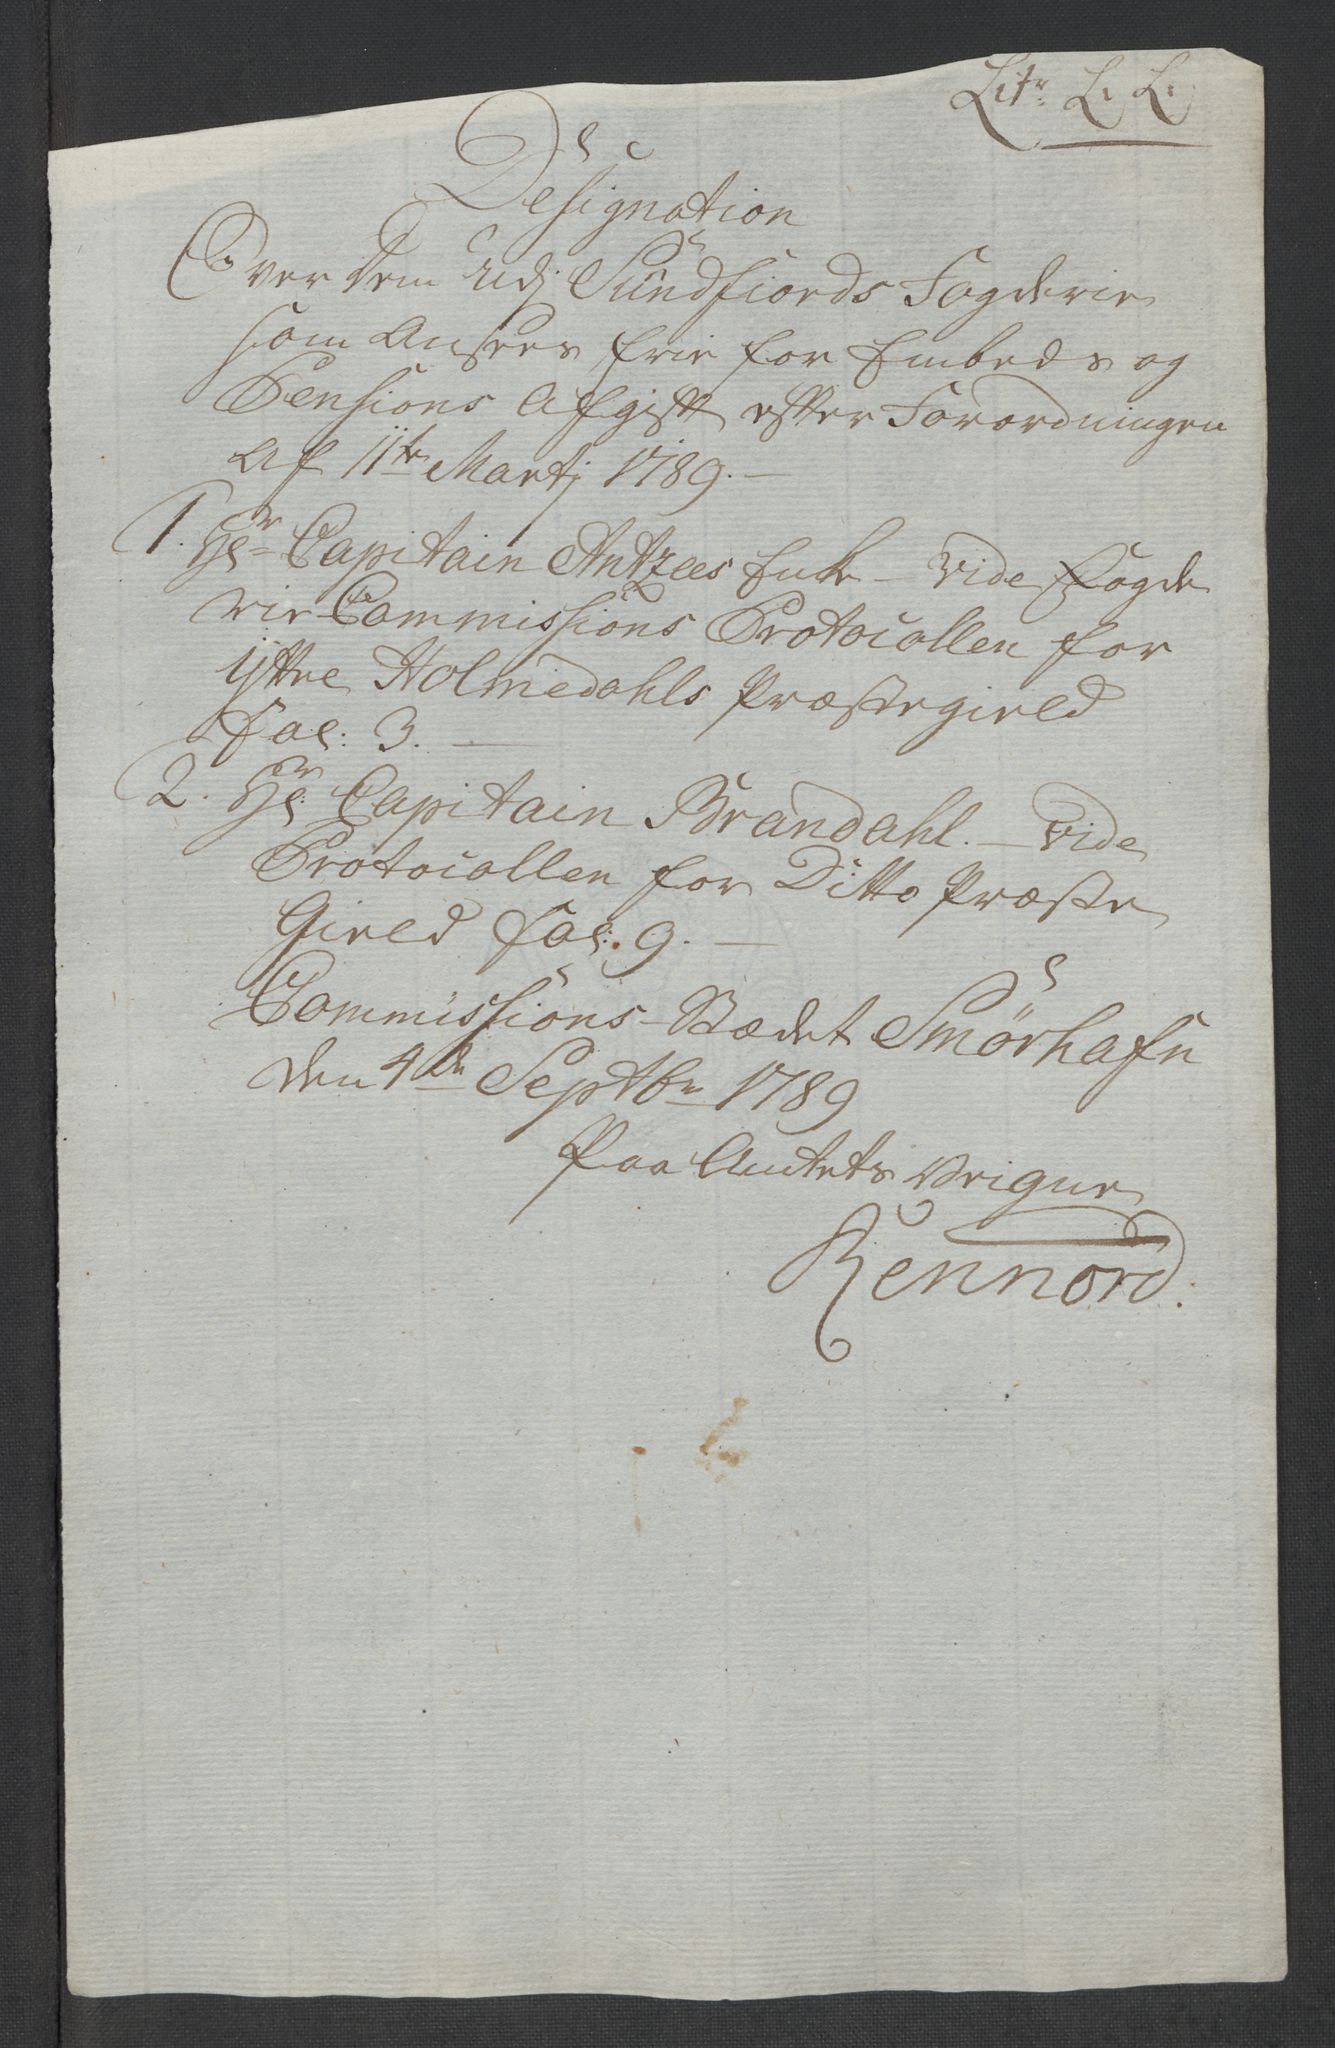 Litr. L. L.
Designation
Over dem udj Sundfiords Fogderie
som Ansees frie for Embeds og
Pensions Afgift efter Forordningen
af 11te Martj 1789.—
1. Hr. Capitain Antzees Enke — vide Fogde
rie Commissions Protocollen for
Yttre Holmedahls Præstegield
Fol: 3. —
2. Hr. Capitain Brandahl. — vide
Protocollen for Ditto Præste
Gield Fol: 9. —
Commissions-Stædet Smörhafn
den 4de Septbr 1789
Paa Amtets Veigne
Rennord.